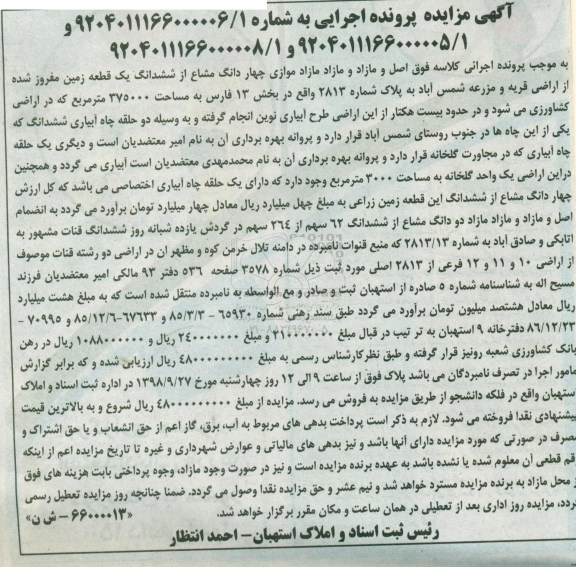 آگهی مزایده پرونده اجرایی به شماره ۹۲۰۴۰۱۱۱۶۶۰۰۰۰۰۶/۱ و
۹۲۰۴۰۱۱۱۶۶۰۰۰۰۰۵/۱ و ۹۲۰۴۰۱۱۱۶۶۰۰۰۰۰۸/۱
به موجب پرونده اجرائی کلاسه فوق اصل و مازاد و مازاد مازاد موازی چهار دانگ مشاع از ششدانگ یک قطعه زمین مفروز شده
از اراضی قریه و مزرعه شمس آباد به پلاک شماره ۲۸۱۳ واقع در بخش ۱۳ فارس به مساحت ۳۷۵۰۰۰ مترمربع که در اراضی
کشاورزی می شود و در حدود بیست هکتار از این اراضی طرح آبیاری نوین انجام گرفته و به وسیله دو حلقه چاه آبیاری ششدانگ که
یکی از این چاه ها در جنوب روستای شمس آباد قرار دارد و پروانه بهره برداری آن به نام امیر معتضدیان است و دیگری یک حلقه
چاه آبیاری که در مجاورت گلخانه قرار دارد و پروانه بهره برداری آن به نام محمدمهدی معتضدیان است آبیاری می گردد و همچنین
دراین اراضی یک واحد گلخانه به مساحت ۳۰۰۰ مترمربع وجود دارد که دارای یک حلقه چاه آبیاری اختصاصی می باشد که کل ارزش
چهار دانگ مشاع از ششدانگ این قطعه زمین زراعی به مبلغ چهل میلیارد ریال معادل چهار میلیارد تومان برآورد می گردد به انضمام
اصل و مازاد و مازاد مازاد دو دانگ مشاع از ششدانگ ۶۲ سهم از ۲۶۴ سهم در گردش یازده شبانه روز ششدانگ قنات مشهور به
اتابکی و صادق آباد به شماره ۲۸۱۳/۱۳ که منبع قنوات نامبرده در دامنه تلال خرمن کوه و مظهر ان در اراضی دو رشته قنات موصوف
از اراضی ۱۰ و ۱۱ و ۱۲ فرعی از ۲۸۱۳ اصلی مورد ثبت ذیل شماره ۳۵۷۸ صفحه ۵۳۶ دفتر ۹۳ مالکی امیر معتضدیان فرزند
مسیح اله به شناسنامه شماره ۵ صادره از استهبان ثبت و صادر و مع الواسطه به نامبرده منتقل شده است که به مبلغ هشت میلیارد
ریال معادل هشتصد میلیون تومان برآورد می گردد طبق سند رهنی شماره ۶۵۹۳۰ - ۸۵/۳/۳ و ۶۷۶۳۳-۸۵/۱۲/۶ و ۷۰۹۹۵ -
۸۶/۱۲/۲۳ دفترخانه ۹ استهبان به تر تیب در قبال مبلغ ۲۱۰۰۰۰۰۰۰ و مبلغ ۲۴۰۰۰۰۰۰۰ ریال و ۱۰۸۸۰۰۰۰۰۰ ریال در رهن
بانک کشاورزی شعبه رونیز قرار گرفته و طبق نظرکارشناس رسمی به مبلغ ۴۸۰۰۰۰۰۰۰۰۰ ریال ارزیابی شده و که برابر گزارش
مامور اجرا در تصرف نامبردگان می باشد پلاک فوق از ساعت ۹ الی ۱۲ روز چهارشنبه مورخ ۱۳۹۸/۹/۲۷ در اداره ثبت اسناد و املاک
استهبان واقع در فلکه دانشجو از طریق مزایده به فروش می رسد. مزایده از مبلغ ۴۸۰۰۰۰۰۰۰۰۰ ریال شروع و به بالاترین قیمت
پیشنهادی نقدا فروخته می شود. لازم به ذکر است پرداخت بدهی های مربوط به آب، برق، گاز اعم از حق انشعاب و یا حق اشتراک و
مصرف در صورتی که مورد مزایده دارای آنها باشد و نیز بدهی های مالیاتی و عوارض شهرداری و غیره تا تاریخ مزایده اعم از اینکه
رقم قطعی آن معلوم شده یا نشده باشد به عهده برنده مزایده است و نیز در صورت وجود مازاد، وجوه پرداختی بابت هزینه های فوق
از محل مازاد به برنده مزایده مسترد خواهد شد و نیم عشر و حق مزایده نقدا وصول می گردد. ضمنا چنانچه روز مزایده تعطیل رسمی
گردد، مزایده روز اداری بعد از تعطیلی در همان ساعت و مکان مقرر برگزار خواهد شد. «۶۶۰۰۰۰۱۳ - ش ن»
رئیس ثبت اسناد و املاک استهبان- احمد انتظار